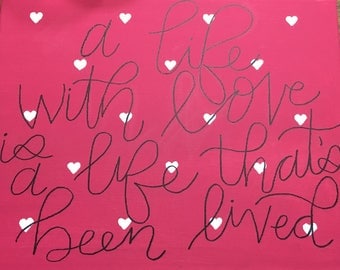 a life
with love
is a life that's
been lived